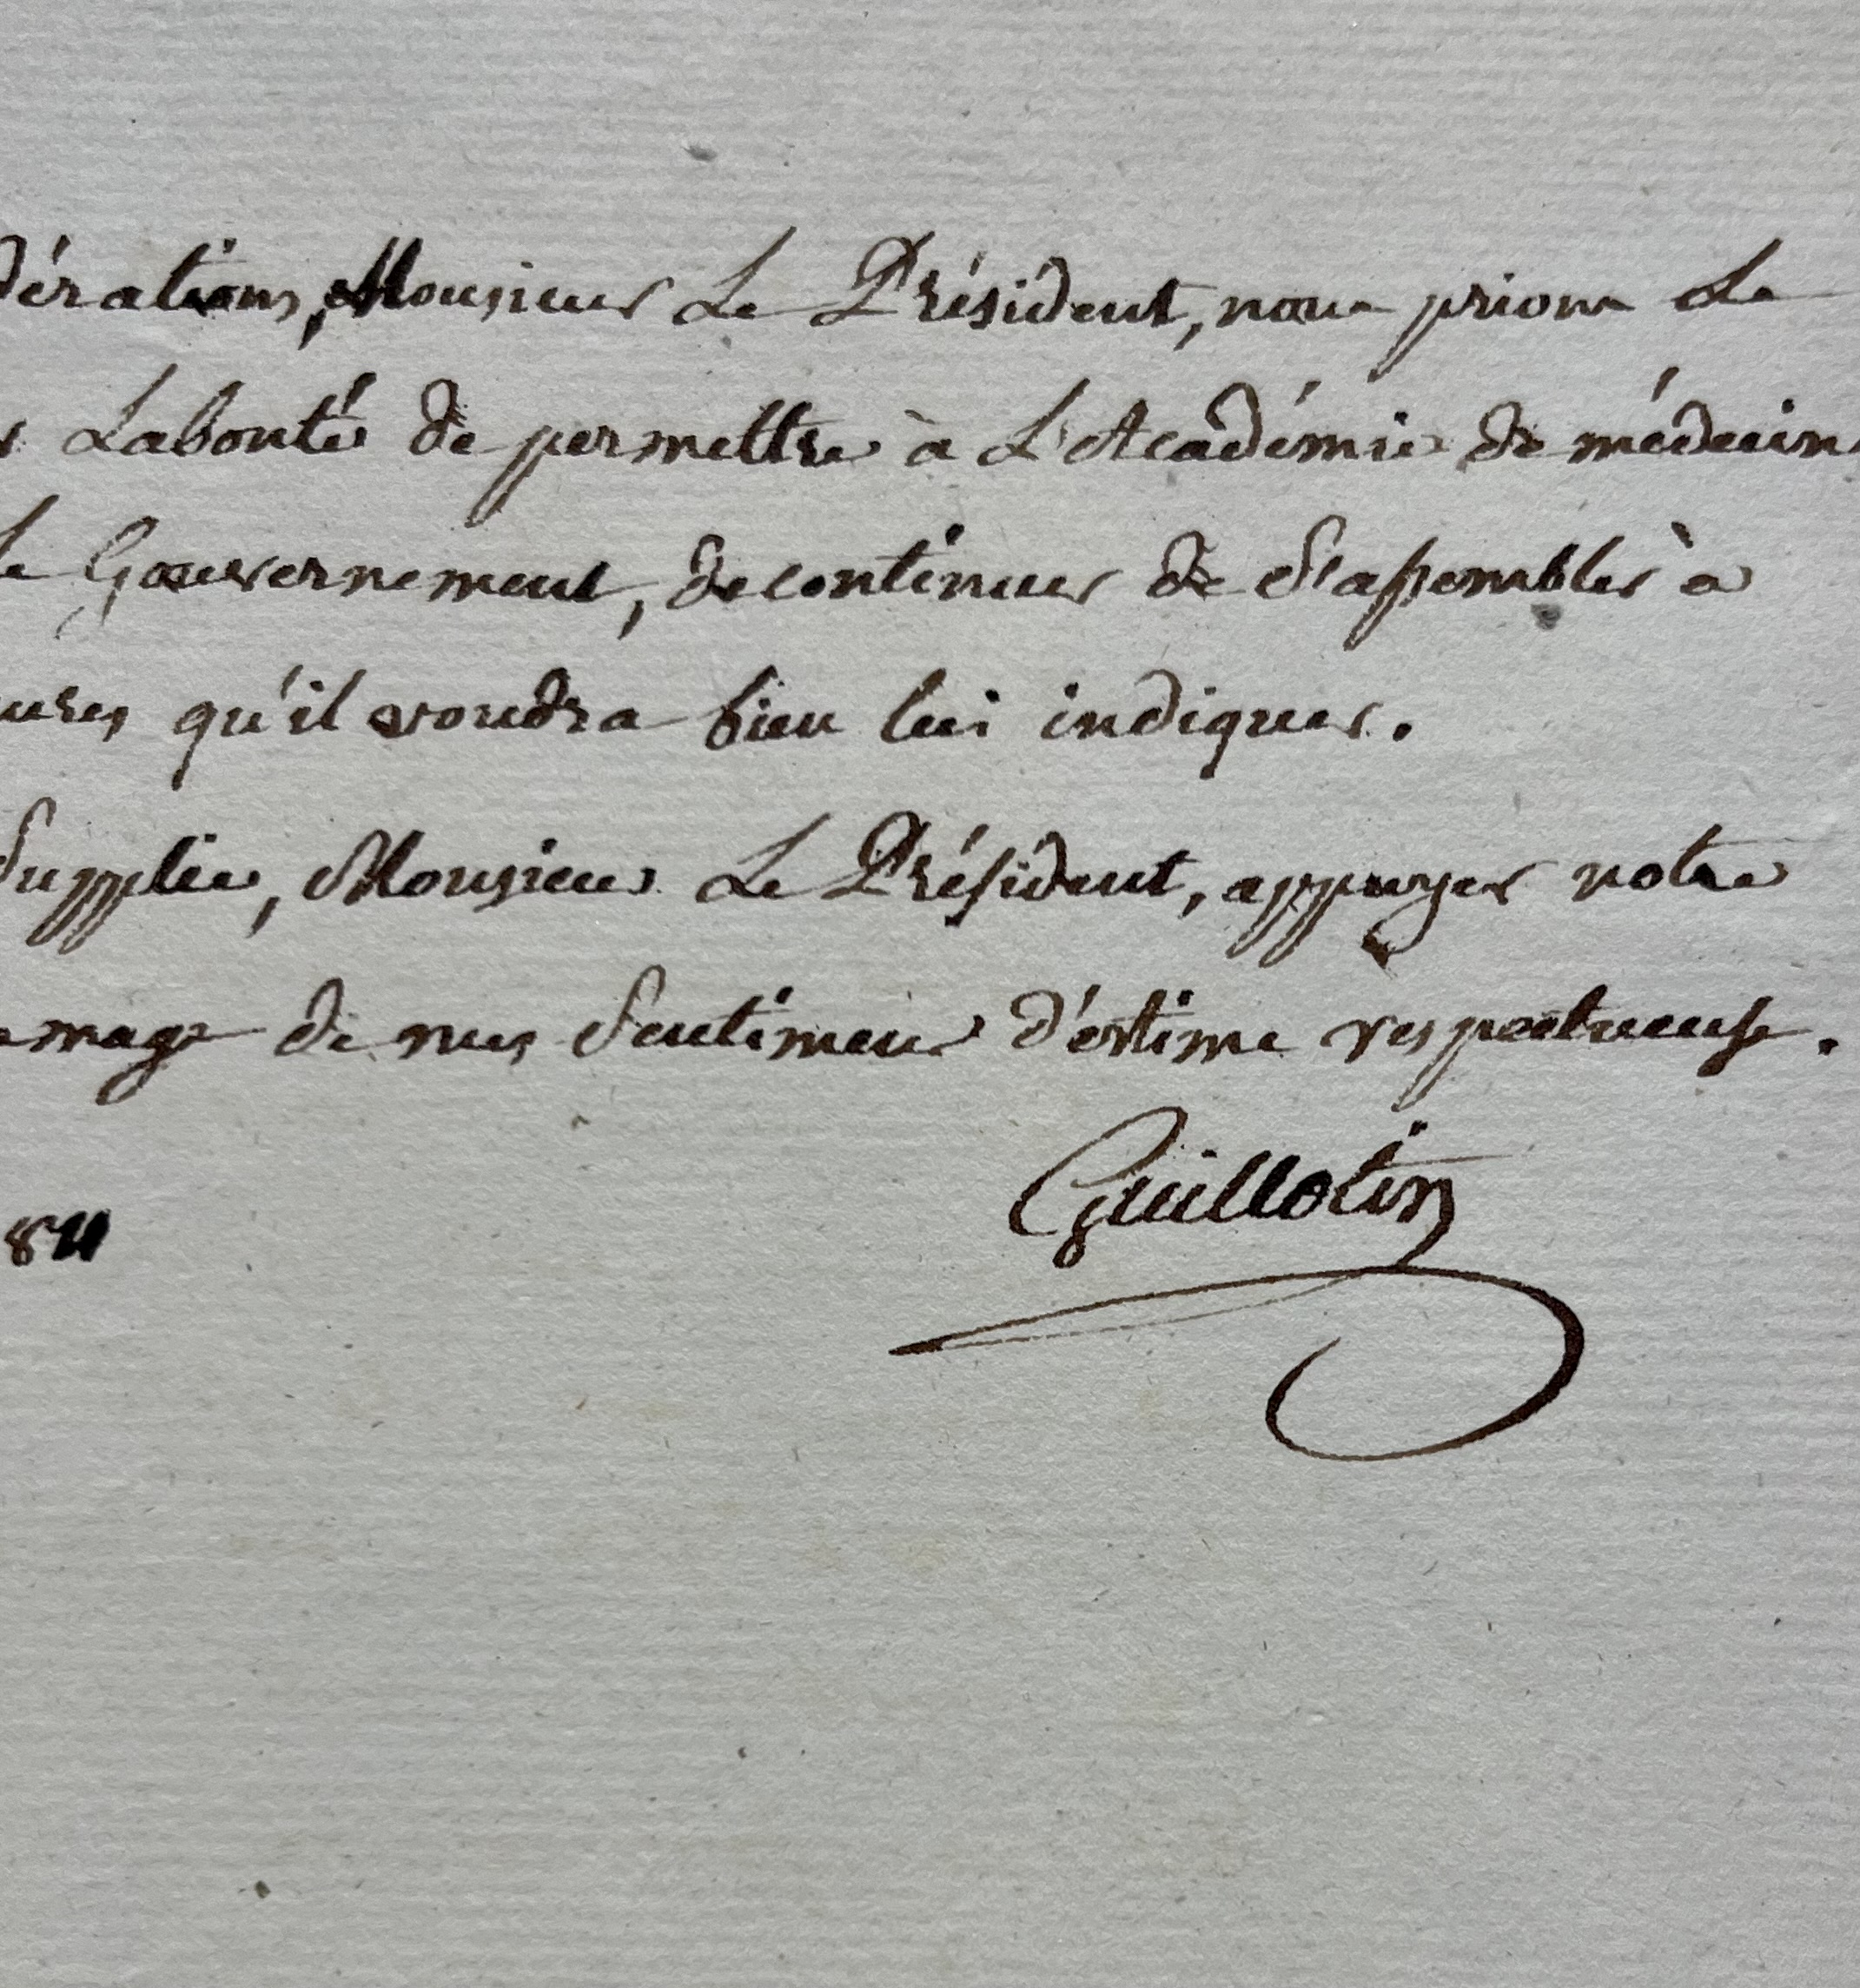 dérations, Monsieur Le Président, nous prions Le
r Labonté de permettre à L'Académie de médecine
Le Gouvernement, de continuer de S'assembler à
ures qu'il voudra bien lui indiquer.
Supplie, Monsieur Le Président, appuyer notre
mmage de nos Sentimens d'estime respectueuse.
Guillotin
811